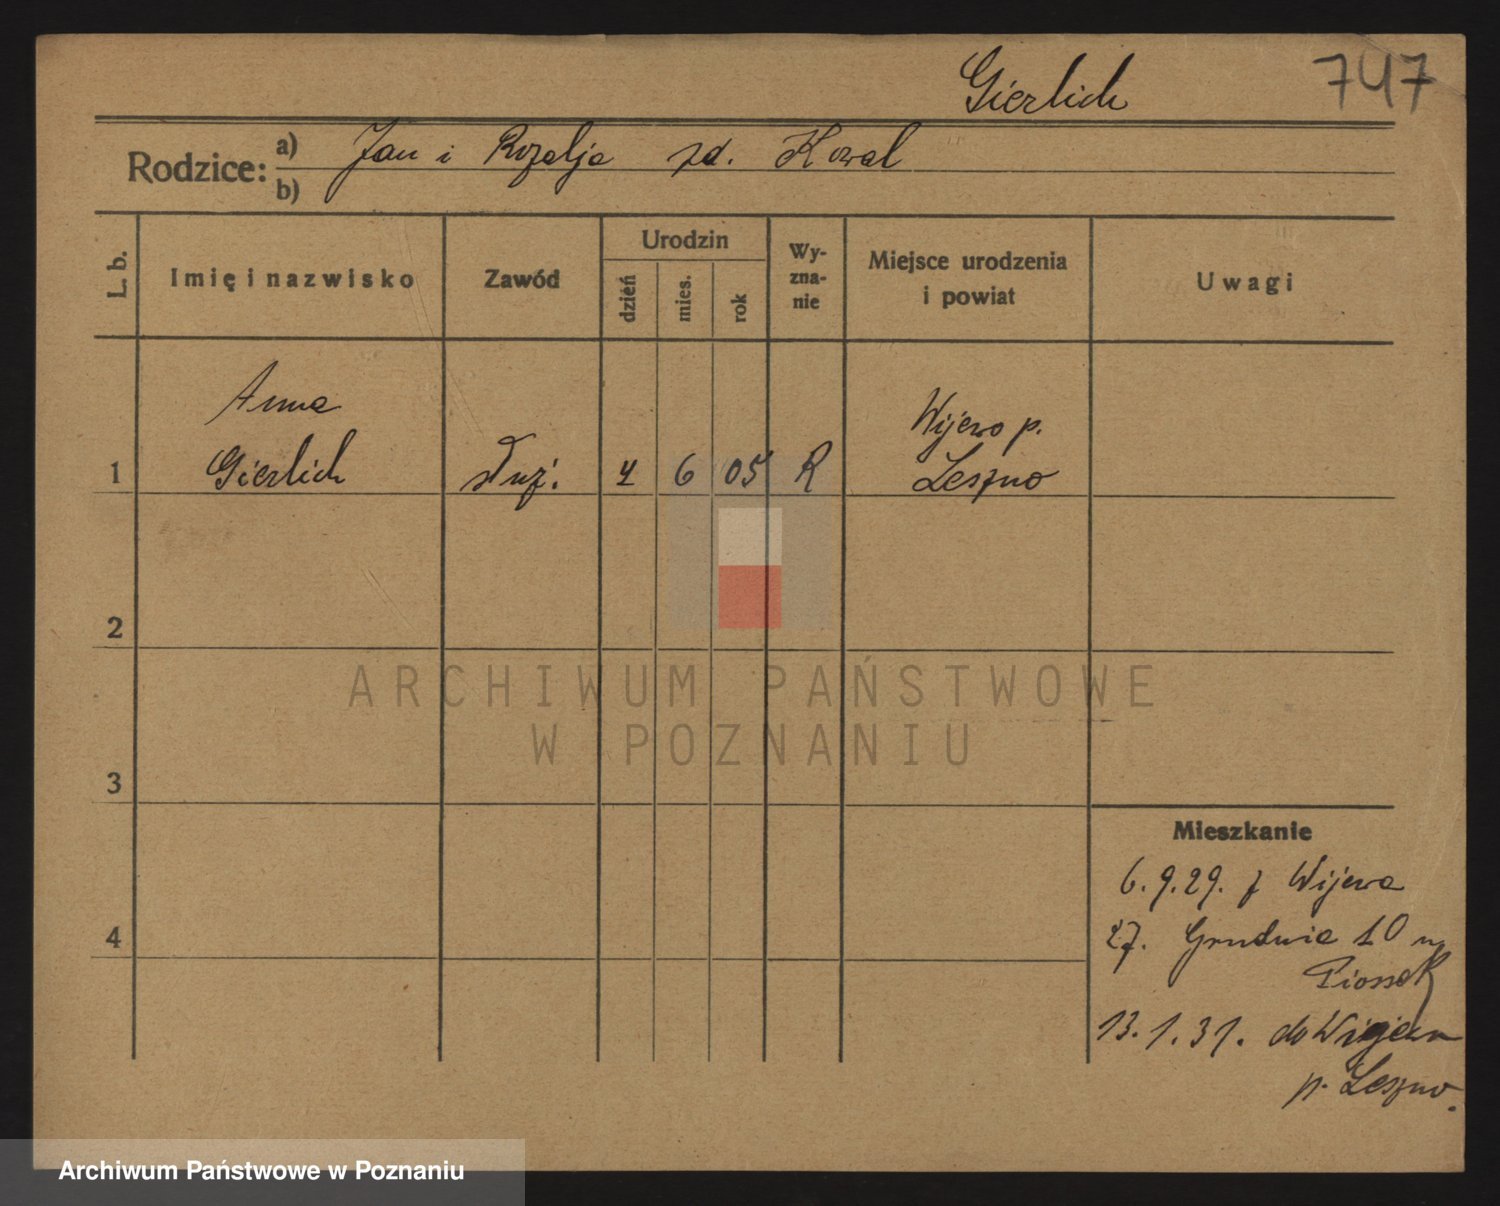 Gierlich 747
Rodzice: a) Jan i Rozalja zd. Kowal
b)
L. b. Imię i nazwisko Zawód Urodzin dzień mies. rok Wy-zna-nie Miejsce urodzenia i powiat Uwagi
Anna Wijewo p.
1 Gierlich służ. 4 6 05 R Leszno
2
ARCHIWUM PAŃSTWOWE
W POZNANIU
3
Mieszkanie
6.9.29. z Wijewa
4
27. Grudnia 10 u
13.1.31. do Wijewa
p. Leszno.
Archiwum Państwowe w Poznaniu